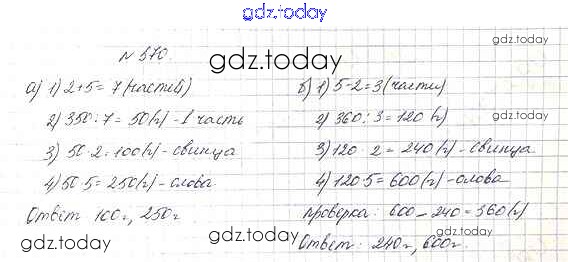 gdz.today
№ 570.
gdz.today
gdz.today
а) 1) 2+5= 7 (частей)
2) 350:7= 50(г)-1 часть
3) 50·2=100(г)-свинца
4) 50·5=250(г)-олова
Ответ 100г, 250г
gdz.today
б) 1) 5-2=3(части)
2) 360:3=120 (г)
3) 120 2=240(г)-свинца.
4) 120·5=600(г)-олова
проверка: 600-240=360(г)
Ответ: 240г, 600г.
gdz.today
gdz.today